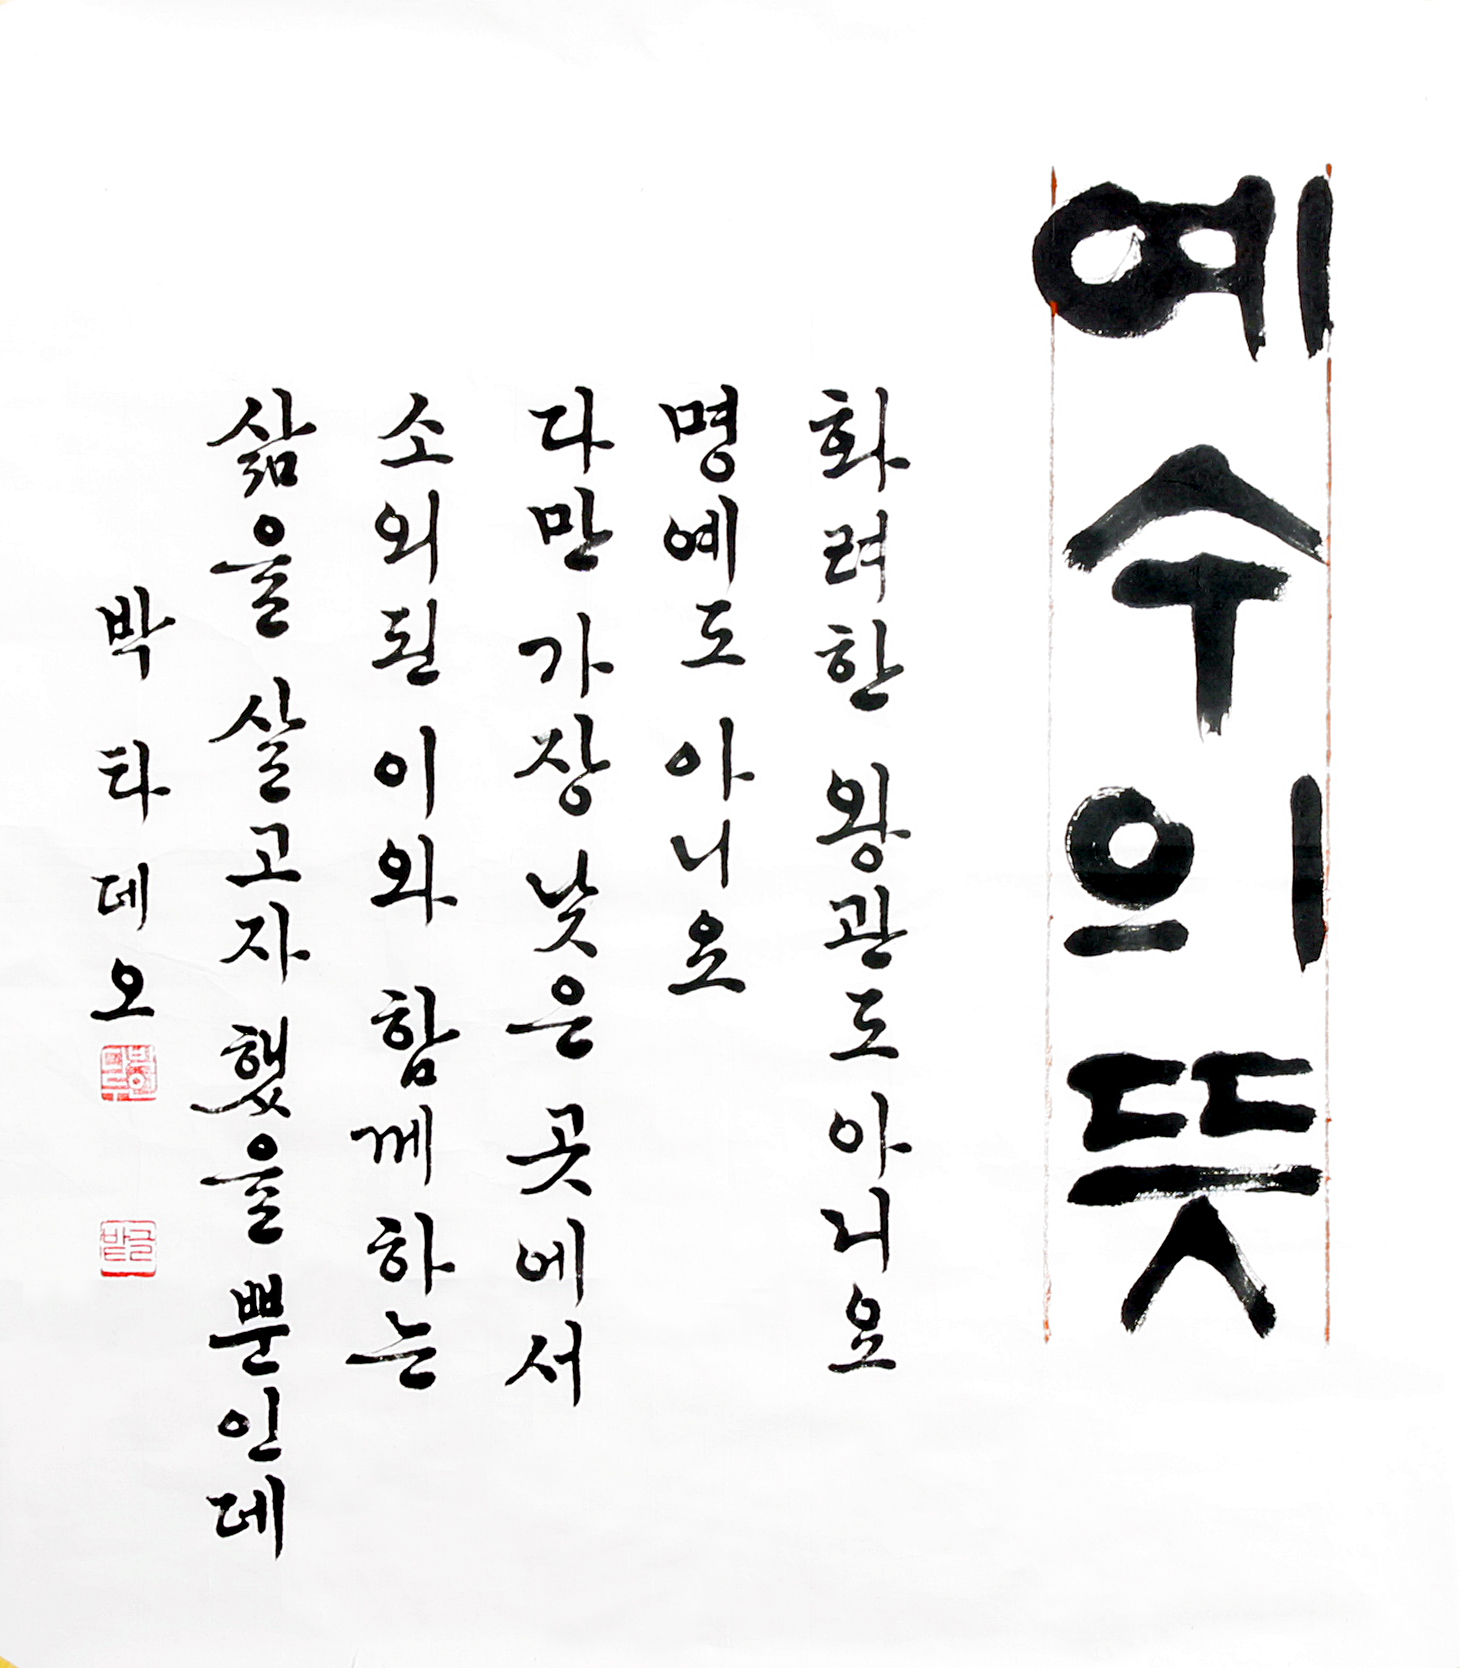 예수의뜻
화려한 왕관도 아니요
명예도 아니요
다만 가장 낮은 곳에서
소외된 이와 함께하는
삶을 살고자 했을 뿐인데
박타데오